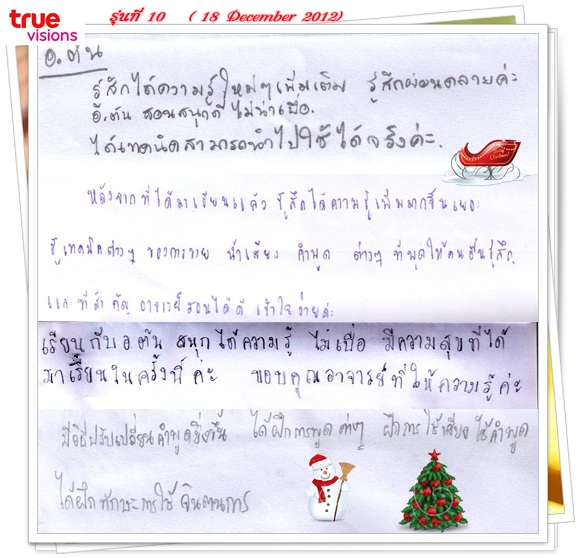 true
visions
รุ่นที่ 10 ( 18 December 2012)
อ.ต้น
รู้สึกได้ความรู้ใหม่ๆเพิ่มเติม รู้สึกผ่อนคลายค่ะ
อ.ต้น สอนสนุกดี ไม่น่าเบื่อ.
ได้เทคนิคสามารถนำไปใช้ได้จริงค่ะ.
หลังจากที่ได้มาเรียนแล้ว รู้สึกได้ความรู้เพิ่มมากขึ้นเยอะ
รู้เทคนิคต่างๆ ของการขาย น้ำเสียง คำพูด ต่างๆ ที่พูดให้คนอื่นรู้สึก
และที่สำคัญ อาจารย์สอนได้ดี เข้าใจง่ายค่ะ
เรียนกับอ.ต้น สนุกได้ความรู้ ไม่เบื่อ มีความสุขที่ได้
มาเรียนในครั้งนี้ ค่ะ ขอบคุณอาจารย์ที่ให้ความรู้ค่ะ
มีวิธีปรับเปลี่ยนคำพูดยิ่งขึ้น ได้ฝึกการพูดต่างๆ ฝึกการใช้เสียง ใช้คำพูด
ได้ฝึกทักษะการใช้ จินตนาการ